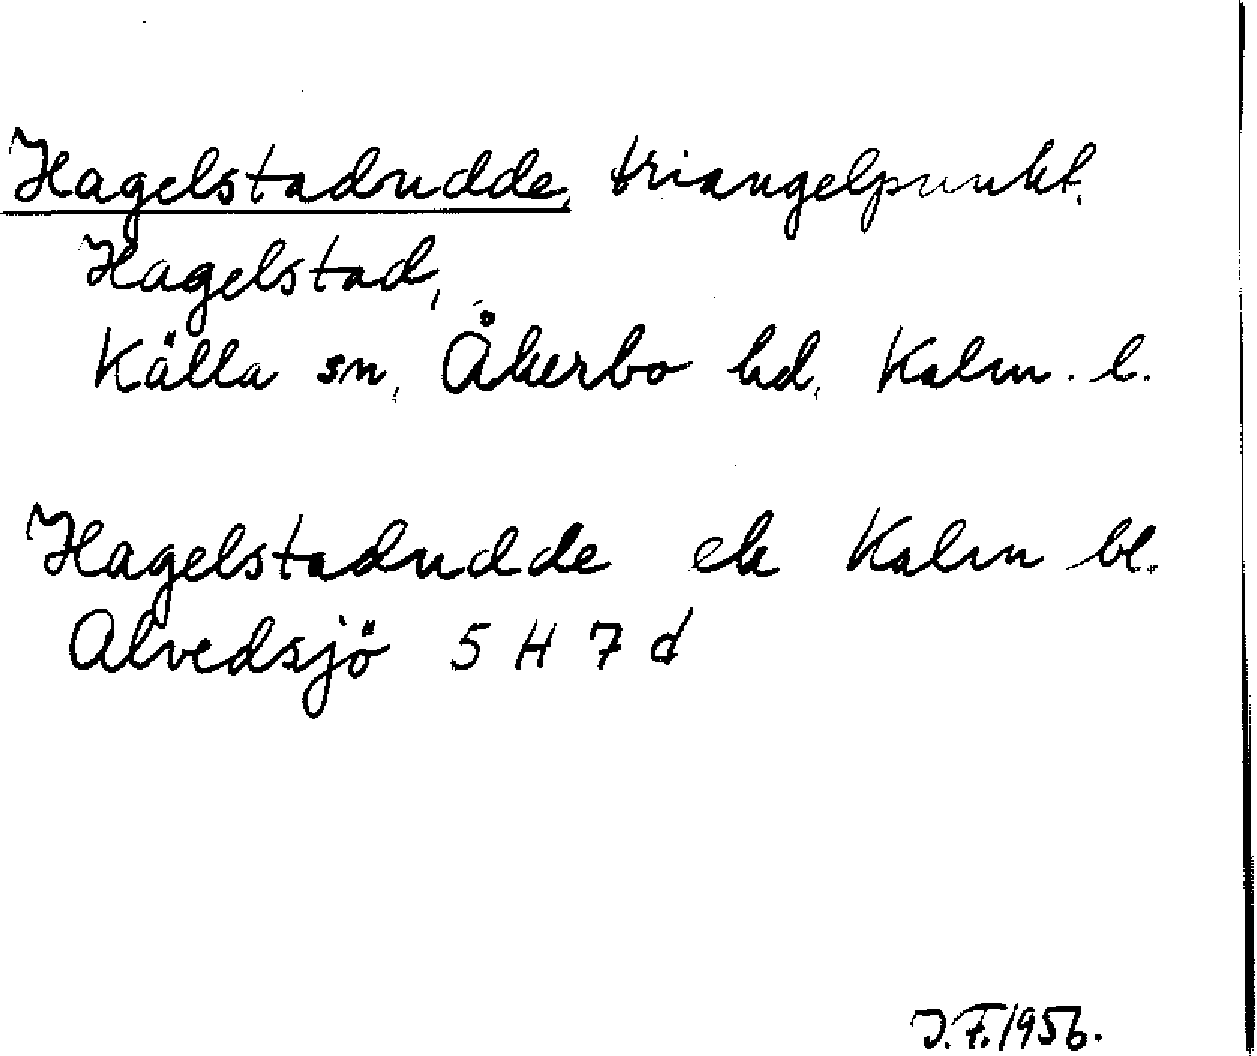 Hagelstadudde, triangelpunkt.
Hagelstad,
Källa sn, Åkerbo hd, Kalm. l.
Hagelstadudde ek Kalm bl.
Alvedsjö 5 H 7 d
J. F. 1956.